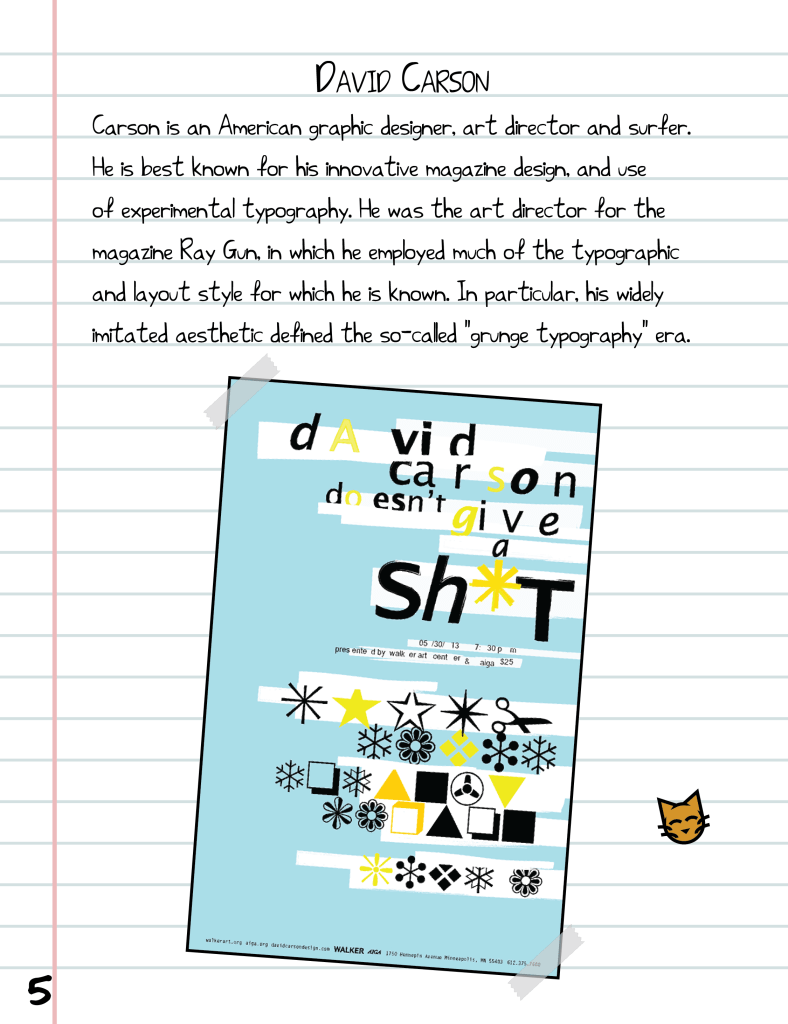 David Carson
Carson is an American graphic designer, art director and surfer.
He is best known for his innovative magazine design, and use
of experimental typography. He was the art director for the
magazine Ray Gun, in which he employed much of the typographic
and layout style for which he is known. In particular, his widely
imitated aesthetic defined the so-called "grunge typography" era.
dAvid
carson
doesn't give
a
Sh*T
05/30/13 7:30 pm
presented by walker art center & aiga $25
walkerart.org aiga.org davidcarsondesign.com WALKER AIGA 1750 Hennepin Avenue Minneapolis, MN 55403
5